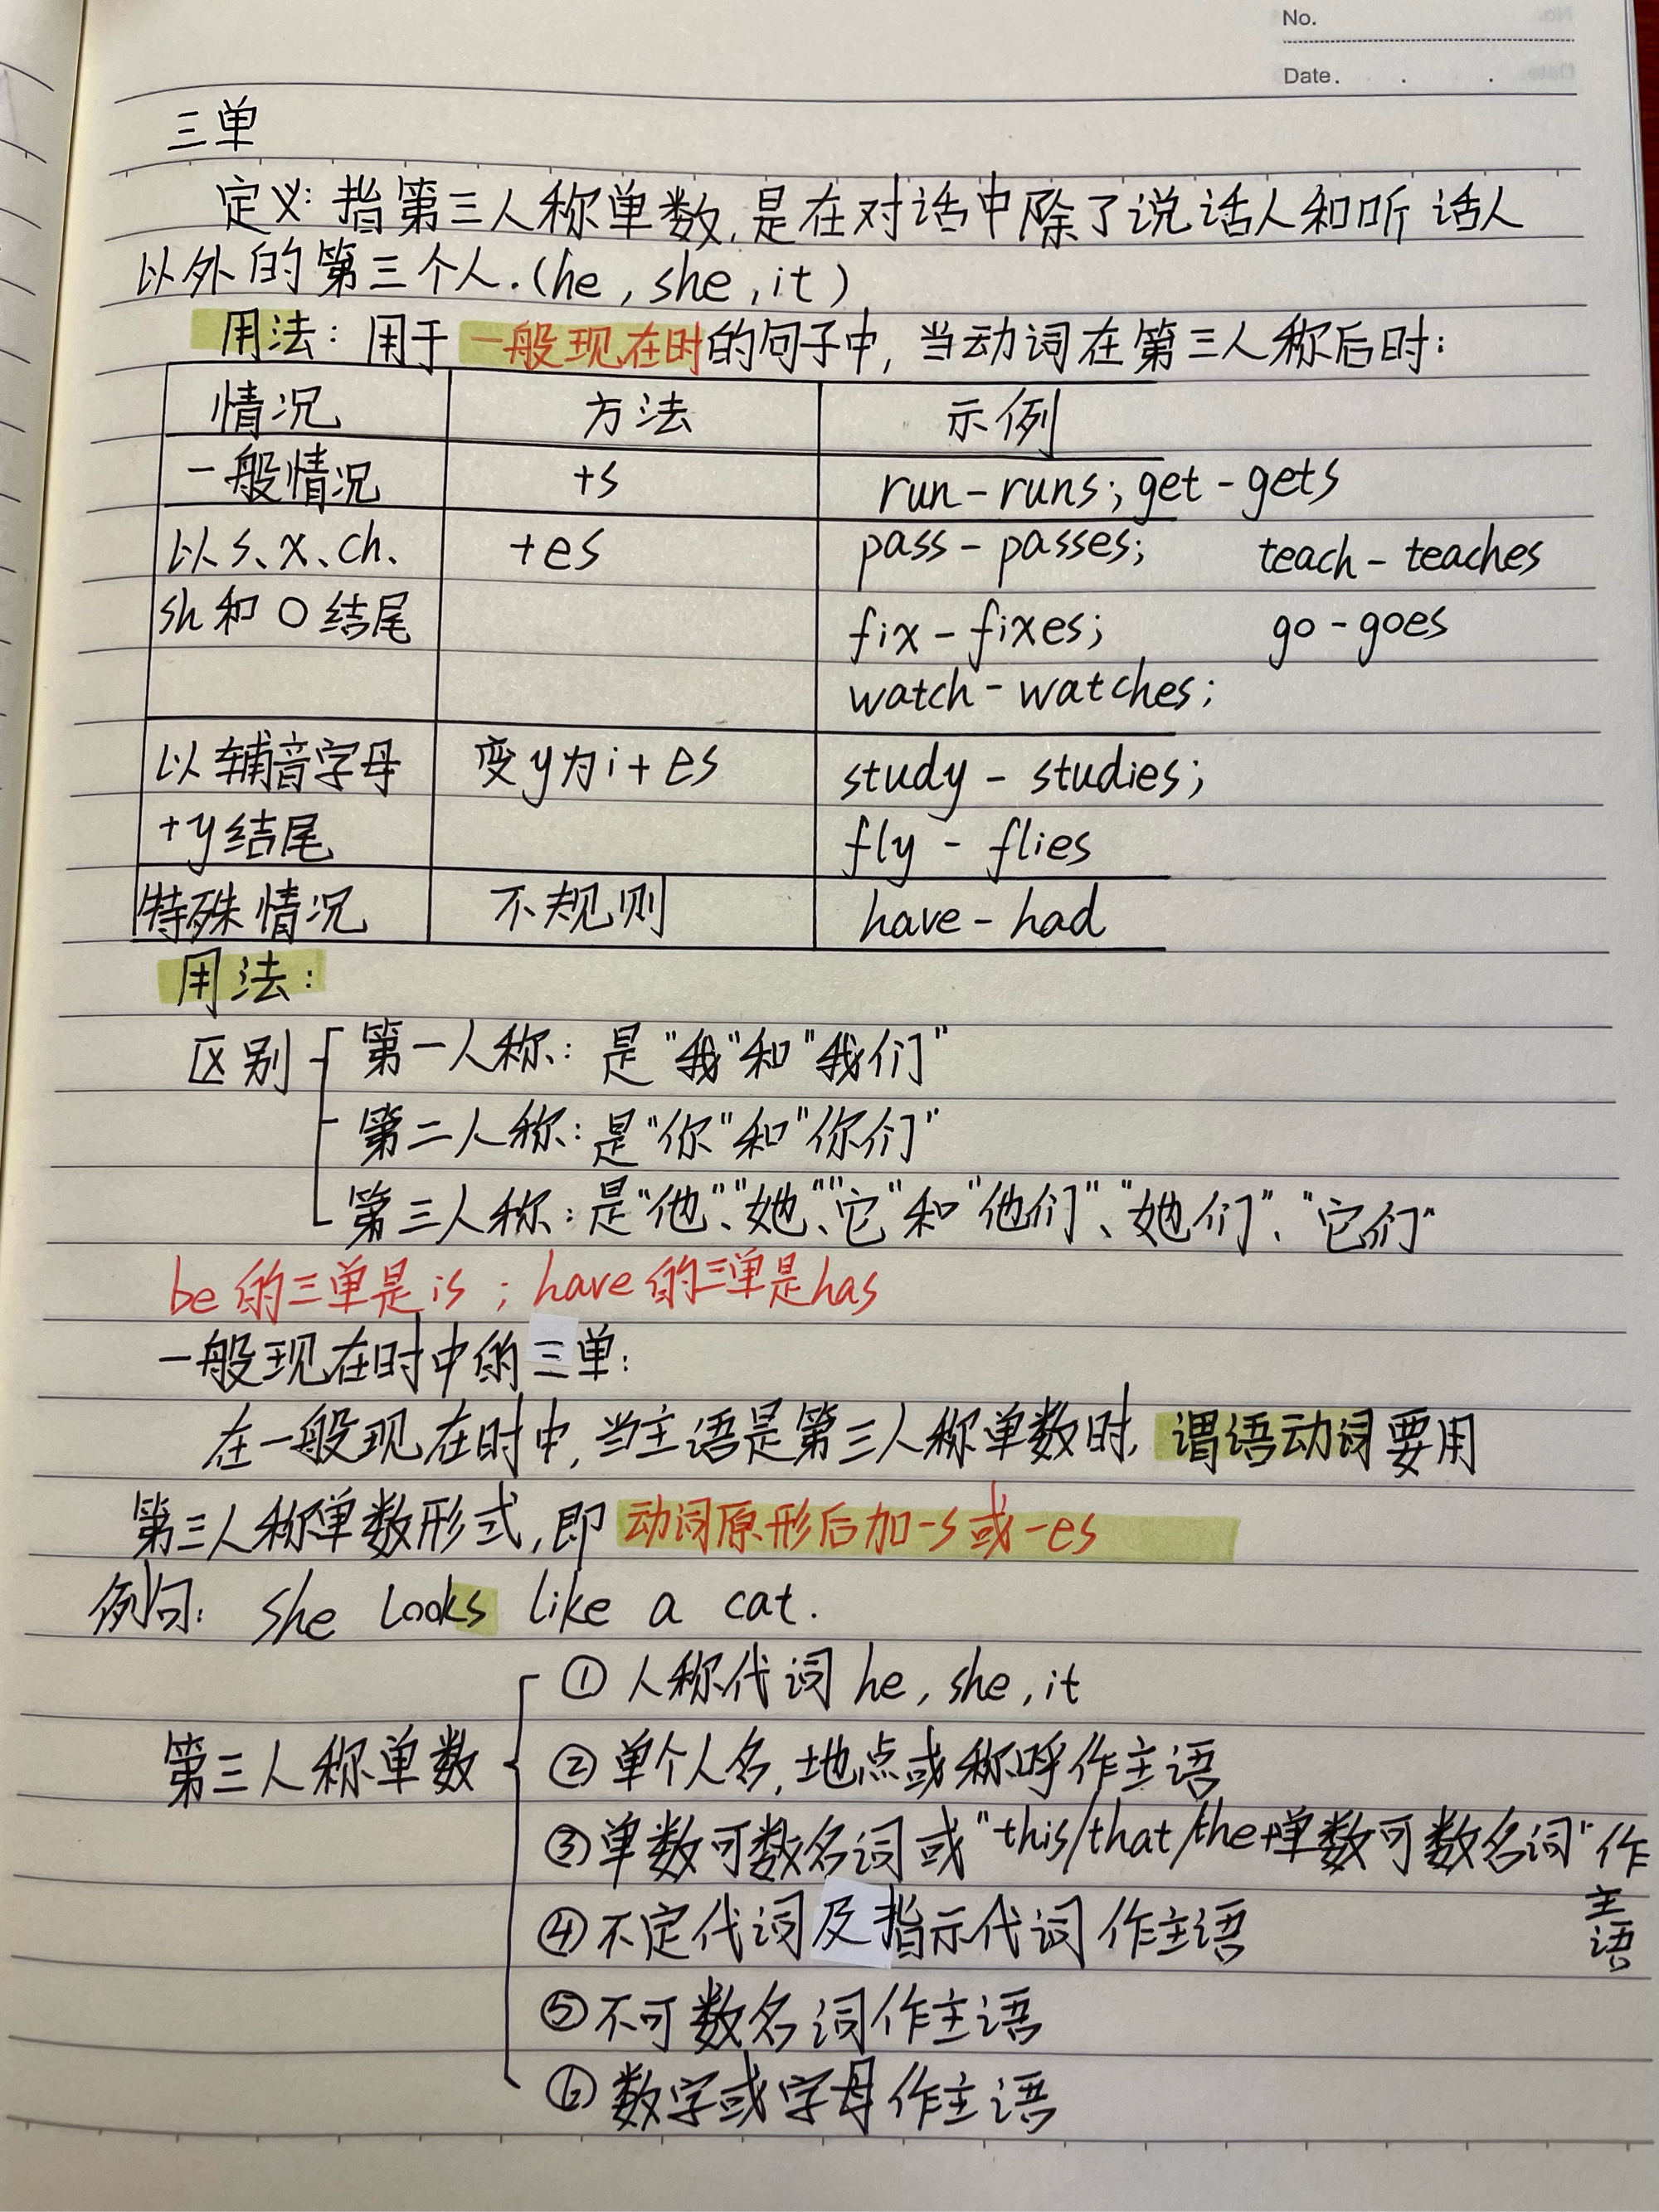 No.
Date. . .
三单
定义:指第三人称单数,是在对话中除了说话人和听话人
以外的第三个人.(he,she,it)
用法:用于一般现在时的句子中,当动词在第三人称后时:
情况 方法 示例
一般情况 +s run-runs;get-gets
以s、x、ch、 +es pass-passes; teach-teaches
sh和O结尾 fix-fixes; go-goes
watch-watches;
以辅音字母 变y为i+es study-studies;
+y结尾 fly-flies
特殊情况 不规则 have-had
用法:
区别 第一人称:是"我"和"我们"
第二人称:是"你"和"你们"
第三人称:是"他"、"她"、"它"和"他们"、"她们"、"它们"
be的三单是is;have的三单是has
一般现在时中的三单:
在一般现在时中,当主语是第三人称单数时,谓语动词要用
第三人称单数形式,即动词原形后加-s或-es
例句:she looks like a cat.
①人称代词he,she,it
第三人称单数 ②单个人名,地点或称呼作主语
③单数可数名词或"this/that/the+单数可数名词"作
主语
④不定代词及指示代词作主语
⑤不可数名词作主语
⑥数字或字母作主语